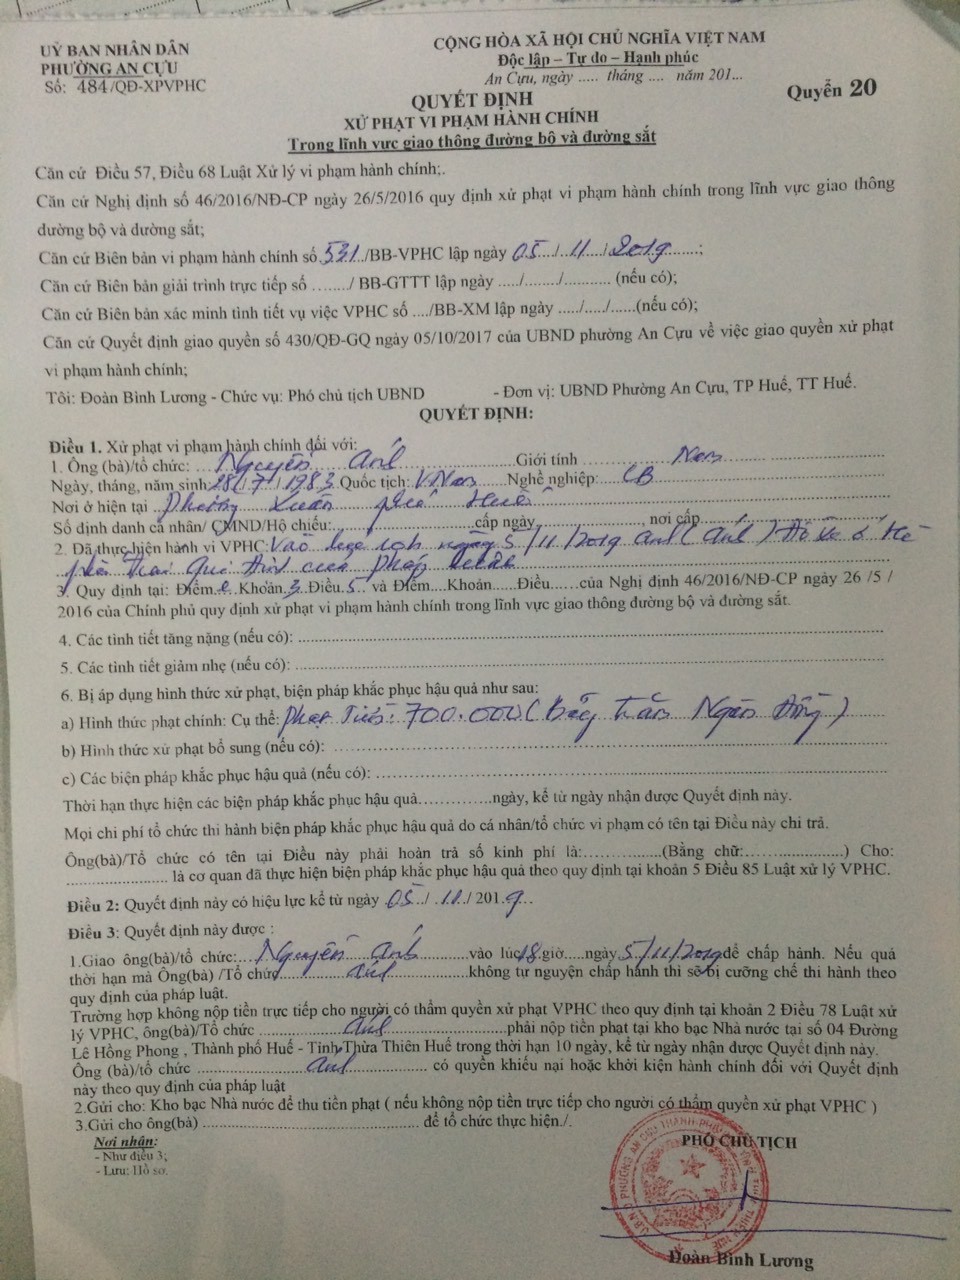 UỶ BAN NHÂN DÂN
PHƯỜNG AN CỰU
Số: 484/QĐ-XPVPHC
CỘNG HÒA XÃ HỘI CHỦ NGHĨA VIỆT NAM
Độc lập – Tự do – Hạnh phúc
An Cựu, ngày ..... tháng ..... năm 201...
Quyển 20
QUYẾT ĐỊNH
XỬ PHẠT VI PHẠM HÀNH CHÍNH
Trong lĩnh vực giao thông đường bộ và đường sắt
Căn cứ Điều 57, Điều 68 Luật Xử lý vi phạm hành chính;.
Căn cứ Nghị định số 46/2016/NĐ-CP ngày 26/5/2016 quy định xử phạt vi phạm hành chính trong lĩnh vực giao thông
đường bộ và đường sắt;
Căn cứ Biên bản vi phạm hành chính số 531/BB-VPHC lập ngày 05/11/2019;
Căn cứ Biên bản giải trình trực tiếp số ......../ BB-GTTT lập ngày ...../......./........... (nếu có);
Căn cứ Biên bản xác minh tình tiết vụ việc VPHC số ..../BB-XM lập ngày ..../..../......(nếu có);
Căn cứ Quyết định giao quyền số 430/QĐ-GQ ngày 05/10/2017 của UBND phường An Cựu về việc giao quyền xử phạt
vi phạm hành chính;
Tôi: Đoàn Bình Lương - Chức vụ: Phó chủ tịch UBND - Đơn vị: UBND Phường An Cựu, TP Huế, TT Huế.
QUYẾT ĐỊNH:
Điều 1. Xử phạt vi phạm hành chính đối với:
1. Ông (bà)/tổ chức: Nguyễn Giới tính Nam
Ngày, tháng, năm sinh 28/7/1983 Quốc tịch: V.Nam Nghề nghiệp: CB
Nơi ở hiện tại Phường Xuân phú Huế
Số định danh cá nhân/ CMND/Hộ chiếu:..............cấp ngày.............., nơi cấp..............
2. Đã thực hiện hành vi VPHC: Vào ngày 5/11/2019 Đỗ xe ở hè
phố trái Qui định của Pháp
3. Quy định tại: Điểm e Khoản 3 Điều 5 và Điểm....Khoản......Điều.....của Nghị định 46/2016/NĐ-CP ngày 26 /5 /
2016 của Chính phủ quy định xử phạt vi phạm hành chính trong lĩnh vực giao thông đường bộ và đường sắt.
4. Các tình tiết tăng nặng (nếu có): ..............
5. Các tình tiết giảm nhẹ (nếu có): ..............
6. Bị áp dụng hình thức xử phạt, biện pháp khắc phục hậu quả như sau:
a) Hình thức phạt chính: Cụ thể: Phạt Tiền: 700.000 (Bảy trăm Ngàn Đồng)
b) Hình thức xử phạt bổ sung (nếu có): ..............
c) Các biện pháp khắc phục hậu quả (nếu có): ..............
Thời hạn thực hiện các biện pháp khắc phục hậu quả..............ngày, kể từ ngày nhận được Quyết định này.
Mọi chi phí tổ chức thi hành biện pháp khắc phục hậu quả do cá nhân/tổ chức vi phạm có tên tại Điều này chi trả.
Ông(bà)/Tổ chức có tên tại Điều này phải hoàn trả số kinh phí là:..............(Bằng chữ:..............) Cho:
.............. là cơ quan đã thực hiện biện pháp khắc phục hậu quả theo quy định tại khoản 5 Điều 85 Luật xử lý VPHC.
Điều 2: Quyết định này có hiệu lực kể từ ngày 05/11/2019.
Điều 3: Quyết định này được :
1.Giao ông(bà)/tổ chức: Nguyễn vào lúc 18 giờ.....ngày 5/11/2019 để chấp hành. Nếu quá
thời hạn mà Ông(bà) /Tổ chức không tự nguyện chấp hành thì sẽ bị cưỡng chế thi hành theo
quy định của pháp luật.
Trường hợp không nộp tiền trực tiếp cho người có thẩm quyền xử phạt VPHC theo quy định tại khoản 2 Điều 78 Luật xử
lý VPHC, ông(bà)/Tổ chức phải nộp tiền phạt tại kho bạc Nhà nước tại số 04 Đường
Lê Hồng Phong , Thành phố Huế - Tỉnh Thừa Thiên Huế trong thời hạn 10 ngày, kể từ ngày nhận được Quyết định này.
Ông (bà)/tổ chức có quyền khiếu nại hoặc khởi kiện hành chính đối với Quyết định
này theo quy định của pháp luật
2.Gửi cho: Kho bạc Nhà nước để thu tiền phạt ( nếu không nộp tiền trực tiếp cho người có thẩm quyền xử phạt VPHC )
3.Gửi cho ông(bà) .............. để tổ chức thực hiện./.
Nơi nhận:
- Như điều 3;
- Lưu: Hồ sơ.
PHÓ CHỦ TỊCH
Đoàn Bình Lương